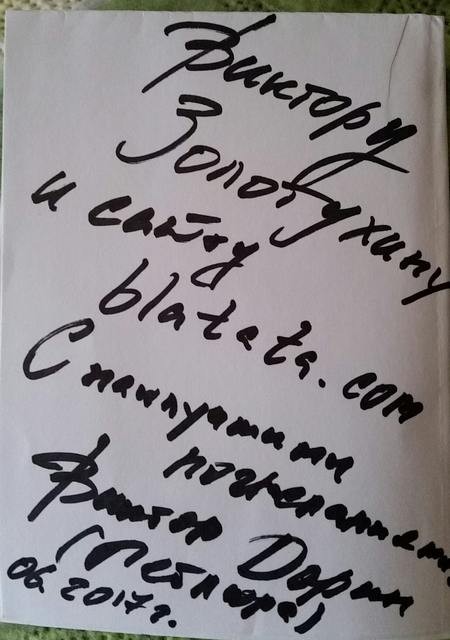 Виктору
Золотухину
и сайту
blatata.com
С наилучшими
пожеланиями
Виктор Дорин
(Петлюра)
06.2017г.